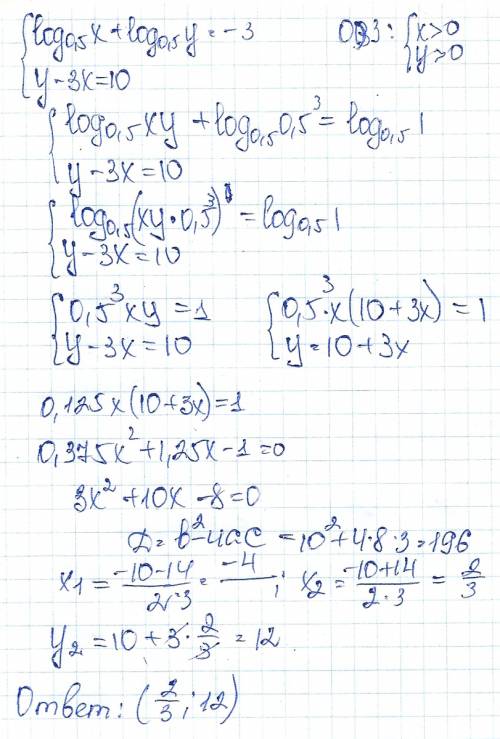 { log₀,₅x + log₀,₅y = -3      ОДЗ: { x>0
{ y - 3x = 10      { y>0
{ log₀,₅xy + log₀,₅0,5³ = log₀,₅1
{ y - 3x = 10
{ log₀,₅(xy·0,5³) = log₀,₅1
{ y - 3x = 10
{ 0,5³xy = 1      { 0,5³·x(10+3x) = 1
{ y - 3x = 10      { y = 10 + 3x
0,125x(10+3x)=1
0,375x²+1,25x-1=0
3x²+10x-8=0
Д = в²-4ac = 10²+4·8·3=196
x₁ = (-10-14)/(2·3) = -4 ; x₂ = (-10+14)/(2·3) = 2/3
y₂ = 10 + 3·2/3 = 12
Ответ: (2/3; 12)